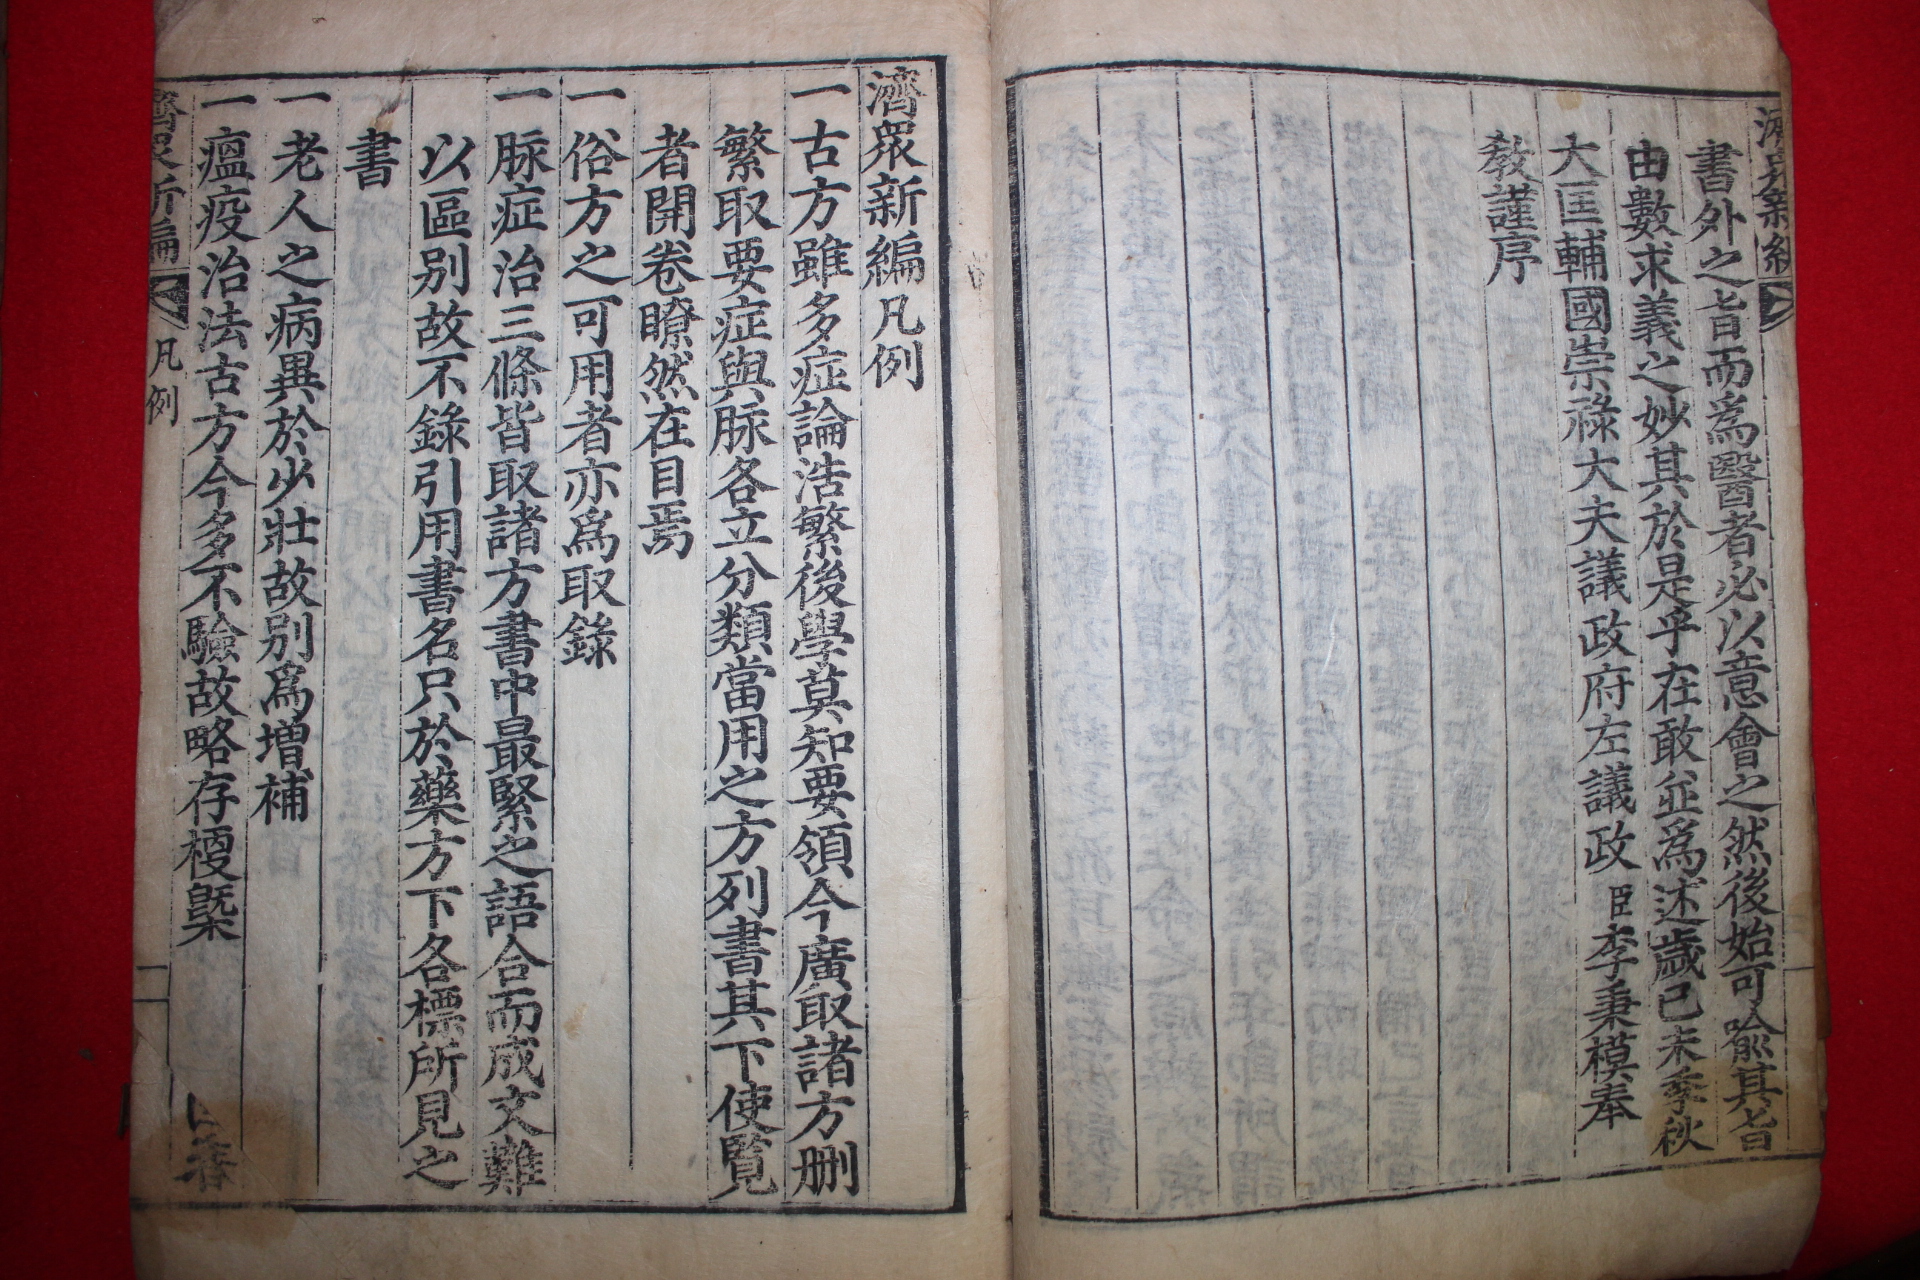 書外之旨而爲醫者必以意會之然後始可喩其旨
由數求義之妙其於是乎在敢並爲述歲己未季秋
大匡輔國崇祿大夫議政府左議政臣李秉模奉
敎謹序
濟衆新編凡例
一古方雖多症論浩繁後學莫知要領今廣取諸方刪
繁取要症與脉各立分類當用之方列書其下使覽
者開卷瞭然在目焉
一俗方之可用者亦爲取錄
一脉症治三條皆取諸方書中最緊之語合而成文難
以區別故不錄引用書名只於藥方下各標所見之
書
一老人之病異於少壯故別爲增補
一瘟疫治法古方今多不驗故略存梗槩
濟衆新編
凡例
一